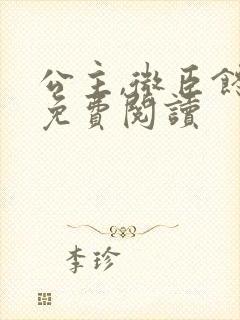 公主,微臣
免費閱讀
李珍